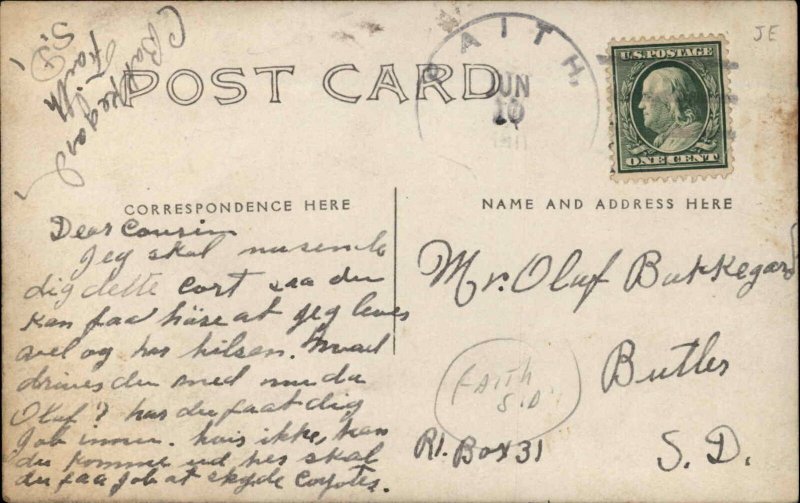 C Bakkegard
Faith
S.D.
POST CARD
FAITH,
JUN
10
U.S. POSTAGE
ONE CENT
JE
CORRESPONDENCE HERE
NAME AND ADDRESS HERE
Dear Cousin
Jeg skal nu sende
dig dette Cort saa du
kan faa høre at jeg leves
vel og har hilsen. Hvad
drives du med nu da
Oluf? har du faat dig
Job innu. hvis ikke, kan
du komme ud her skal
du faa job at skyde Coyotes.
Mr. Oluf Bakkegard
Butler
S.D.
R1. Box 31
FAITH
S.D.